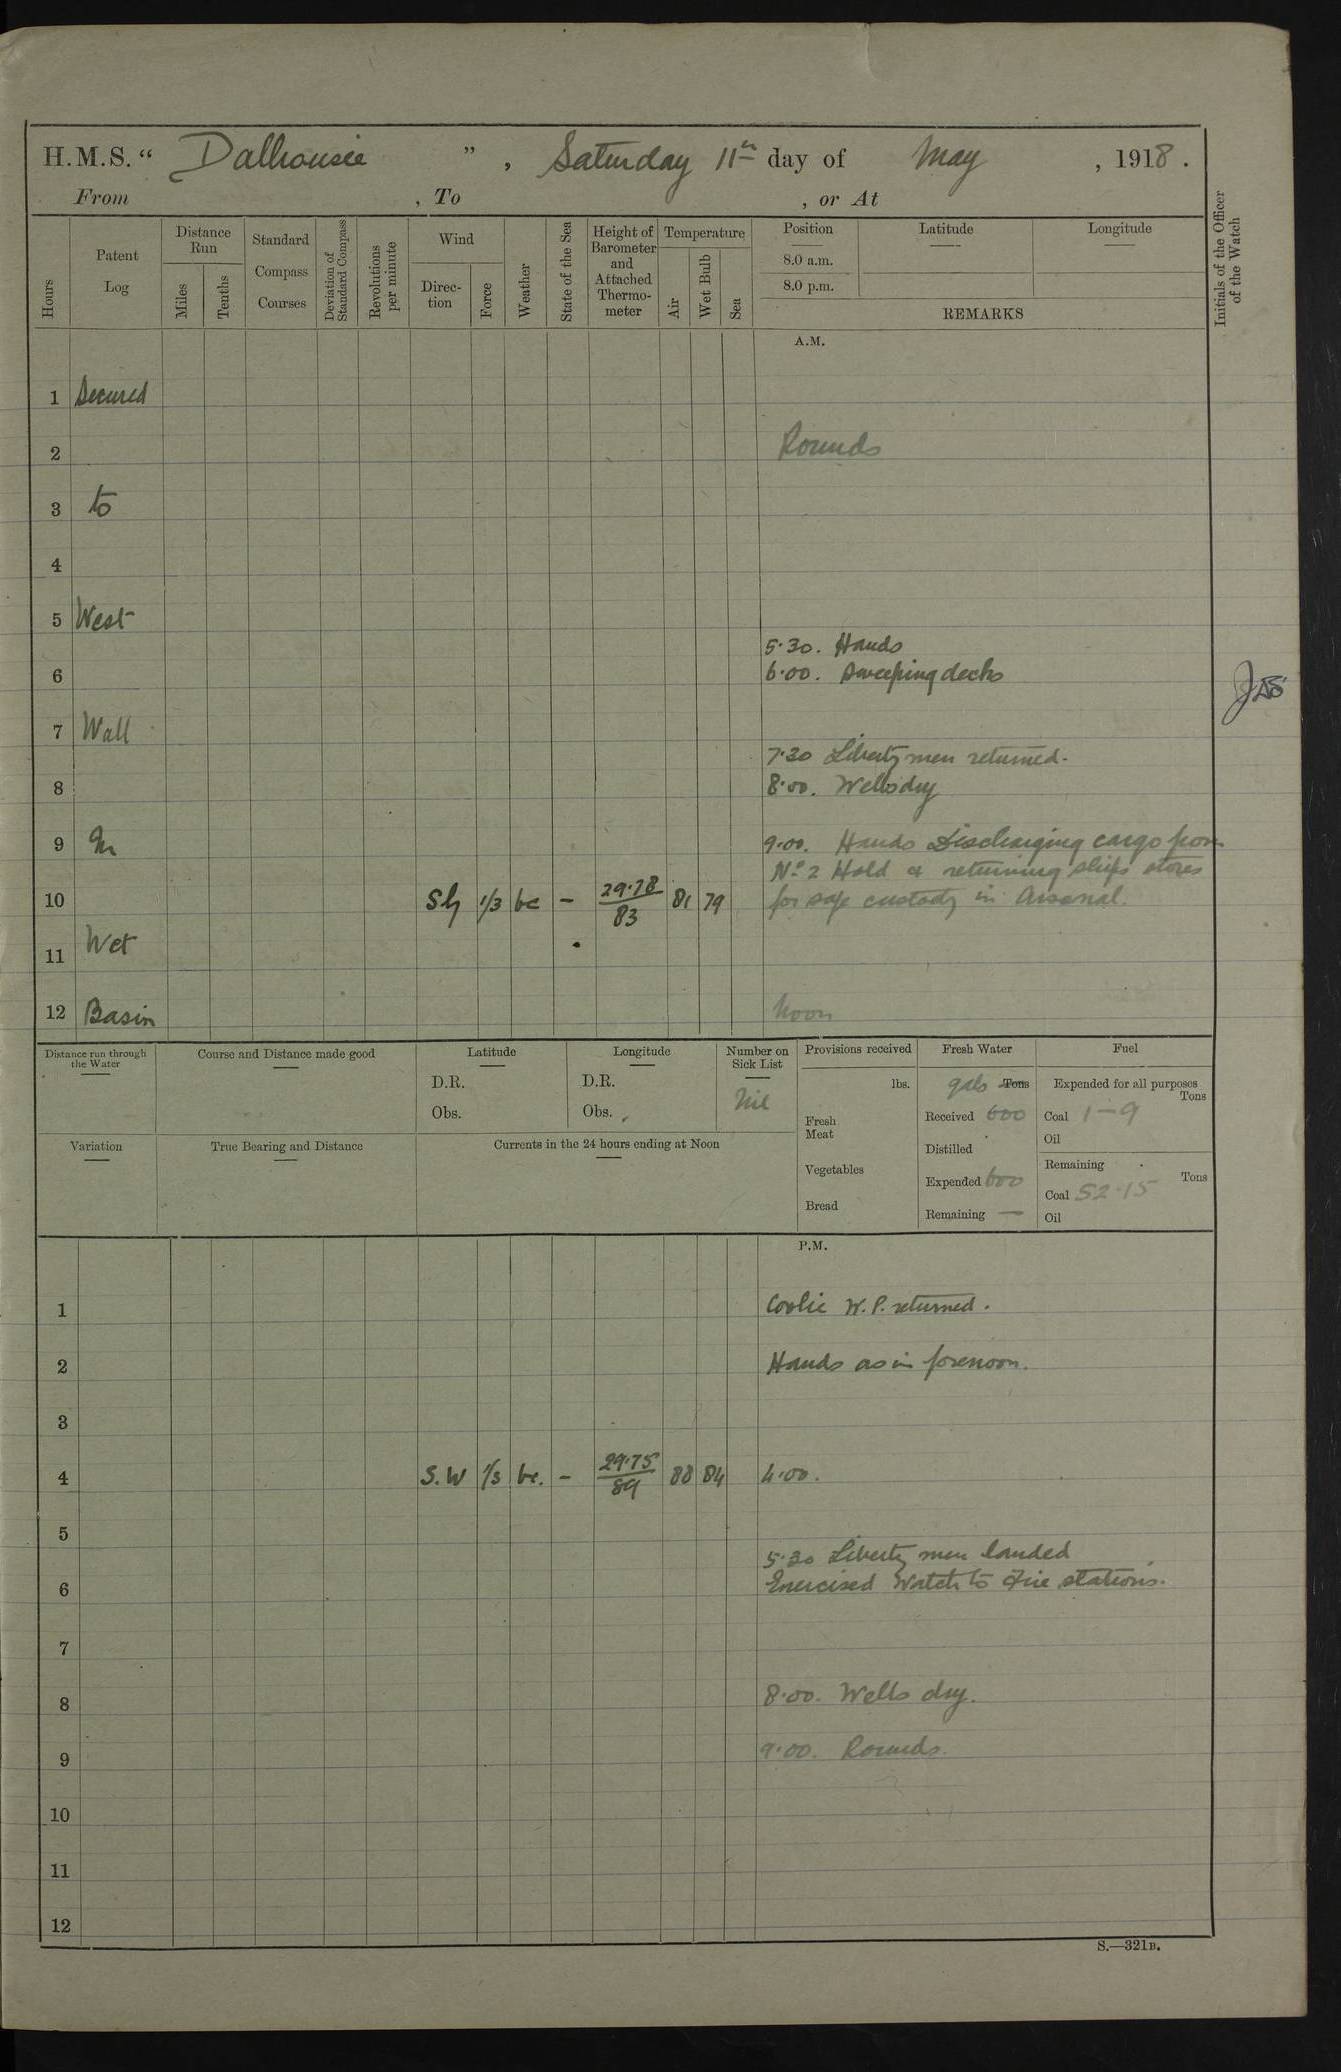 H.M.S. “ Dalhousie ” , Saturday 11th day of May , 1918 .
From , To , or At
Hours
Patent Log
Distance Run
Miles
Tenths
Standard Compass Courses
Deviation of Standard Compass
Revolutions per minute
Wind
Direction
Force
Weather
State of the Sea
Height of Barometer and Attached Thermometer
Temperature
Air
Wet Bulb
Sea
Position
8.0 a.m.
8.0 p.m.
Latitude
Longitude
REMARKS
Initials of the Officer of the Watch
A.M.
1 Secured
2 Rounds
3 to
4
5 West
5.30. Hands
6 6.00. Sweeping decks
7 Wall
7.30 Liberty men returned.
8 8.00. Wells dry
9 In 9.00. Hands Discharging cargo from
No 2 Hold & returning ships stores
10 Sly 1/3 bc - 29.78 / 83 81 79 for safe custody in Arsenal.
11 Wet
12 Basin Noon
Distance run through the Water
Course and Distance made good
Latitude
D.R.
Obs.
Longitude
D.R.
Obs.
Number on Sick List
Nil
Provisions received
lbs.
Fresh Meat
Vegetables
Bread
Fresh Water
gals Tons
Received 600
Distilled
Expended 600
Remaining —
Fuel
Expended for all purposes
Tons
Coal 1-9
Oil
Remaining
Tons
Coal 52.15
Oil
Variation
True Bearing and Distance
Currents in the 24 hours ending at Noon
P.M.
1 Coolie W.P. returned.
2 Hands as in forenoon.
3
4 S.W 1/3 bc. - 29.75 / 89 88 84 4.00.
5
5.30 Liberty men landed
6 Exercised Watch to Fire stations.
7
8 8.00. Wells dry.
9 9.00. Rounds.
10
11
12
S.—321B.